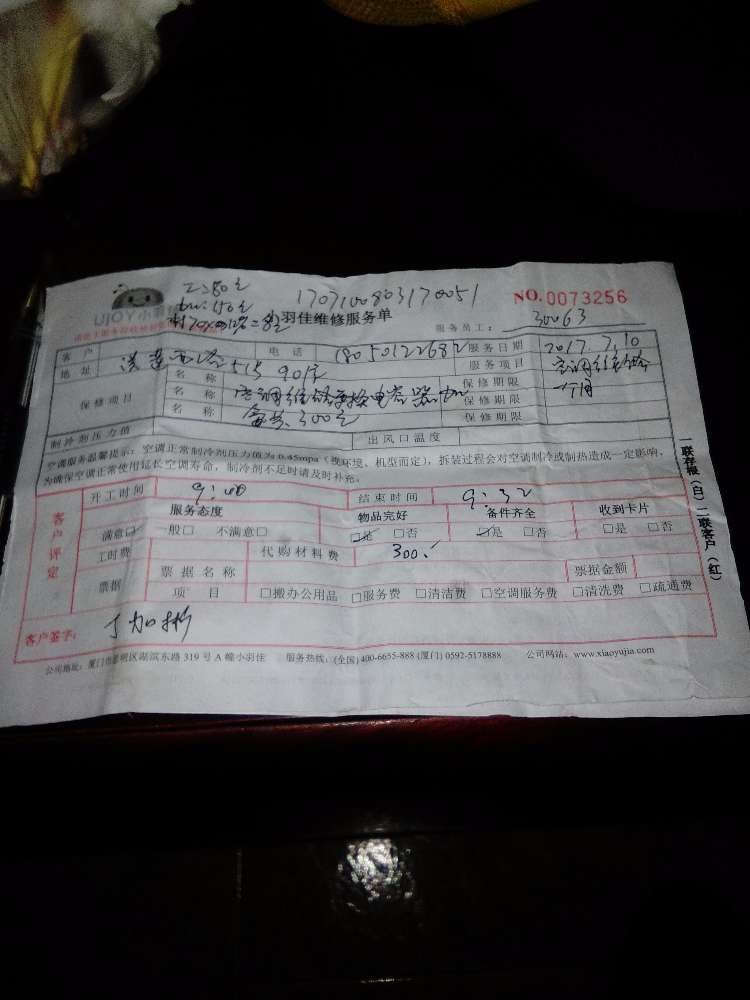 工:80元
1707100803170051
材:150元
NO.0073256
UJOY小羽佳
小羽佳维修服务单
服务员工: 30063
客户 电话 18050122682 服务日期 2017.7.10
地址 515 901 服务项目 空调维修
保修项目 名称 保修期限 一个月
名称 空调维修更换电容器 保修期限
名称 300元 保修期限
制冷剂压力值 出风口温度
空调服务温馨提示:空调正常制冷剂压力值为0.45mpa(视环境、机型而定),拆装过程会对空调制冷或制热造成一定影响,
为确保空调正常使用延长空调寿命,制冷剂不足时请及时补充。
客户评定
开工时间 9:00 结束时间 9:32
服务态度 物品完好 备件齐全 收到卡片
满意☑ 一般□ 不满意□ ☑是 □否 ☑是 □否 □是 □否
工时费 代购材料费 300.
票据 票据名称 票据金额
项目 □搬办公用品 □服务费 □清洁费 □空调服务费 □清洗费 □疏通费
客户签字: 丁加彬
公司地址:厦门市思明区湖滨东路319号A幢小羽佳 服务热线:(全国)400-6655-888 (厦门) 0592-5178888 公司网站:www.xiaoyujia.com
一联存根(白)二联客户(红)